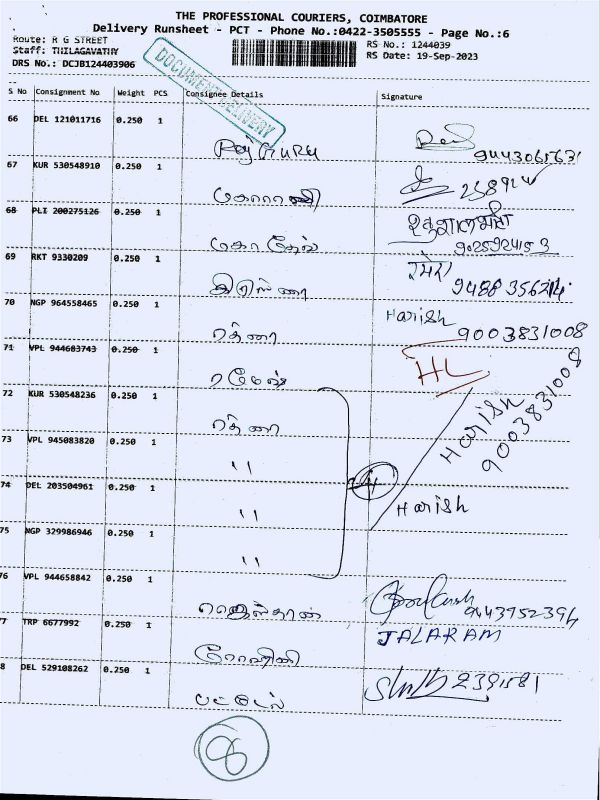 THE PROFESSIONAL COURIERS, COIMBATORE
Delivery Runsheet - PCT - Phone No.:0422-3505555 - Page No.:6
Route: R G STREET
RS No.: 1244039
Staff: THILAGAVATHY
RS Date: 19-Sep-2023
DRS No.: DCJB124403906
DOCUMENT DELIVERY
S No Consignment No Weight PCS Consignee Details Signature
66 DEL 121011716 0.250 1
9443065631
67 KUR 530548910 0.250 1
68 PLI 200275126 0.250 1
மகாதேவ்
9025924153
69 RKT 9330209 0.250 1
கிருஸ்ணா रमेश
9488356214
70 NGP 964558465 0.250 1 Harish
ரத்னா 9003831008
71 VPL 944603743 0.250 1
ரமேஷ் HL
72 KUR 530548236 0.250 1
ரத்னா Harish
9003831008
73 VPL 945083820 0.250 1
"
74 DEL 203504961 0.250 1
" Harish
75 NGP 329986946 0.250 1
"
76 VPL 944658842 0.250 1
ராஜஸ்தான் 9443952394
77 TRP 6677992 0.250 1 JALARAM
78 DEL 529108262 0.250 1
2391581
8